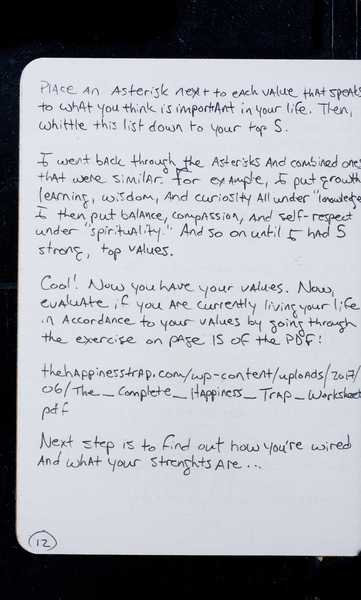 Place an Asterisk next to each value that speaks
to what you think is important in your life. Then,
whittle this list down to your top 5.
I went back through the Asterisks and combined ones
that were similar. For example, I put growth
learning, wisdom, and curiosity all under "knowledge
I then put balance, compassion, and self-respect
under "spirituality." And so on until I had 5
strong, top values.
Cool! Now you have your values. Now,
evaluate if you are currently living your life
in accordance to your values by going through
the exercise on page 15 of the PDF!
thehappinesstrap.com/wp-content/uploads/2017/
06/The_Complete_Happiness_Trap_Worksheet
pdf
Next step is to find out how you're wired
and what your strenghts are...
12